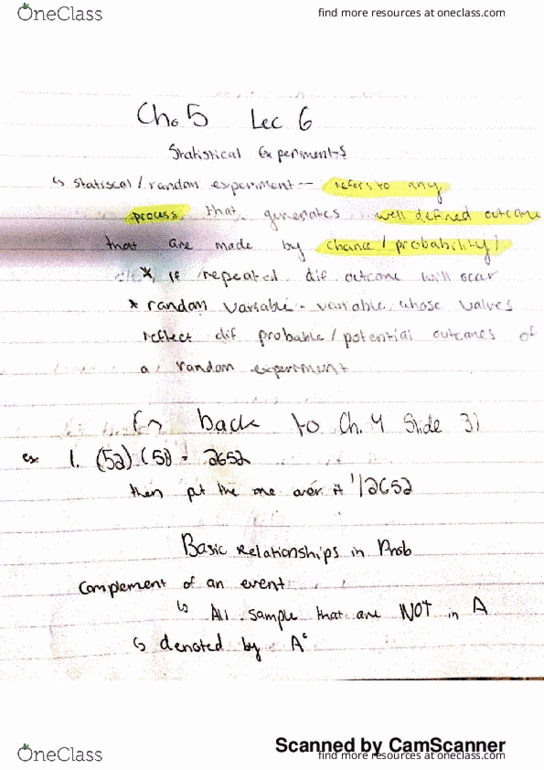 OneClass
find more resources at oneclass.com
Ch. 5 Lec 6
Statistical Experiments
↳ statiscal / random experiment -- refers to any
process that generates well defined outcome
that are made by chance / probability /
* if repeated, dif outcome will
* random variable - variable whose values
reflect dif probable / potential outcomes of
a random experiment
↳ back to Ch. 4 Slide 31
ex 1. (52) (51) = 2652
then put the one over it 1/2652
Basic Relationships in Prob
Complement of an event
↳ All sample that are NOT in A
↳ denoted by Aᶜ
Scanned by CamScanner
OneClass
find more resources at oneclass.com